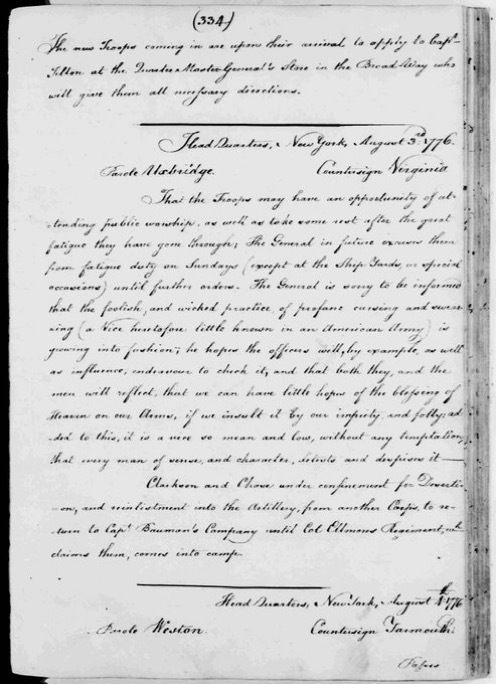 (334)
The new Troops coming in are upon their arrival to apply to Capt
Tilton at the Quarter Master General's Store in the Broad Way who
will give them all necessary directions.
Head Quarters, New York, August 3rd 1776.
Parole Uxbridge. Countersign Virginia
That the Troops may have an opportunity of at-
tending public worship, as well as take some rest after the great
fatigue they have gone through; The General in future excuses them
from fatigue duty on Sundays (except at the Ship Yards, or special
occasions) until further orders. The General is sorry to be informed
that the foolish, and wicked practice, of profane cursing and swear-
ing (a Vice heretofore little known in an American Army) is
growing into fashion; he hopes the officers will, by example, as well
as influence, endeavour to check it, and that both they, and the
men will reflect, that we can have little hopes of the blessing of
Heaven on our Arms, if we insult it by our impiety, and folly; ad-
ded to this, it is a vice so mean and low, without any temptation,
that every man of sense, and character, detests and despises it—
Clarkson and Chase under confinement for Deserti-
-on, and reinlistment into the Artillery, from another Corps, to re-
turn to Capt Bauman's Company until Col Ellmores Regiment, wch
claims them, comes into camp.
Head Quarters, New York, August 4th 1776
Parole Weston. Countersign Yarmouth.